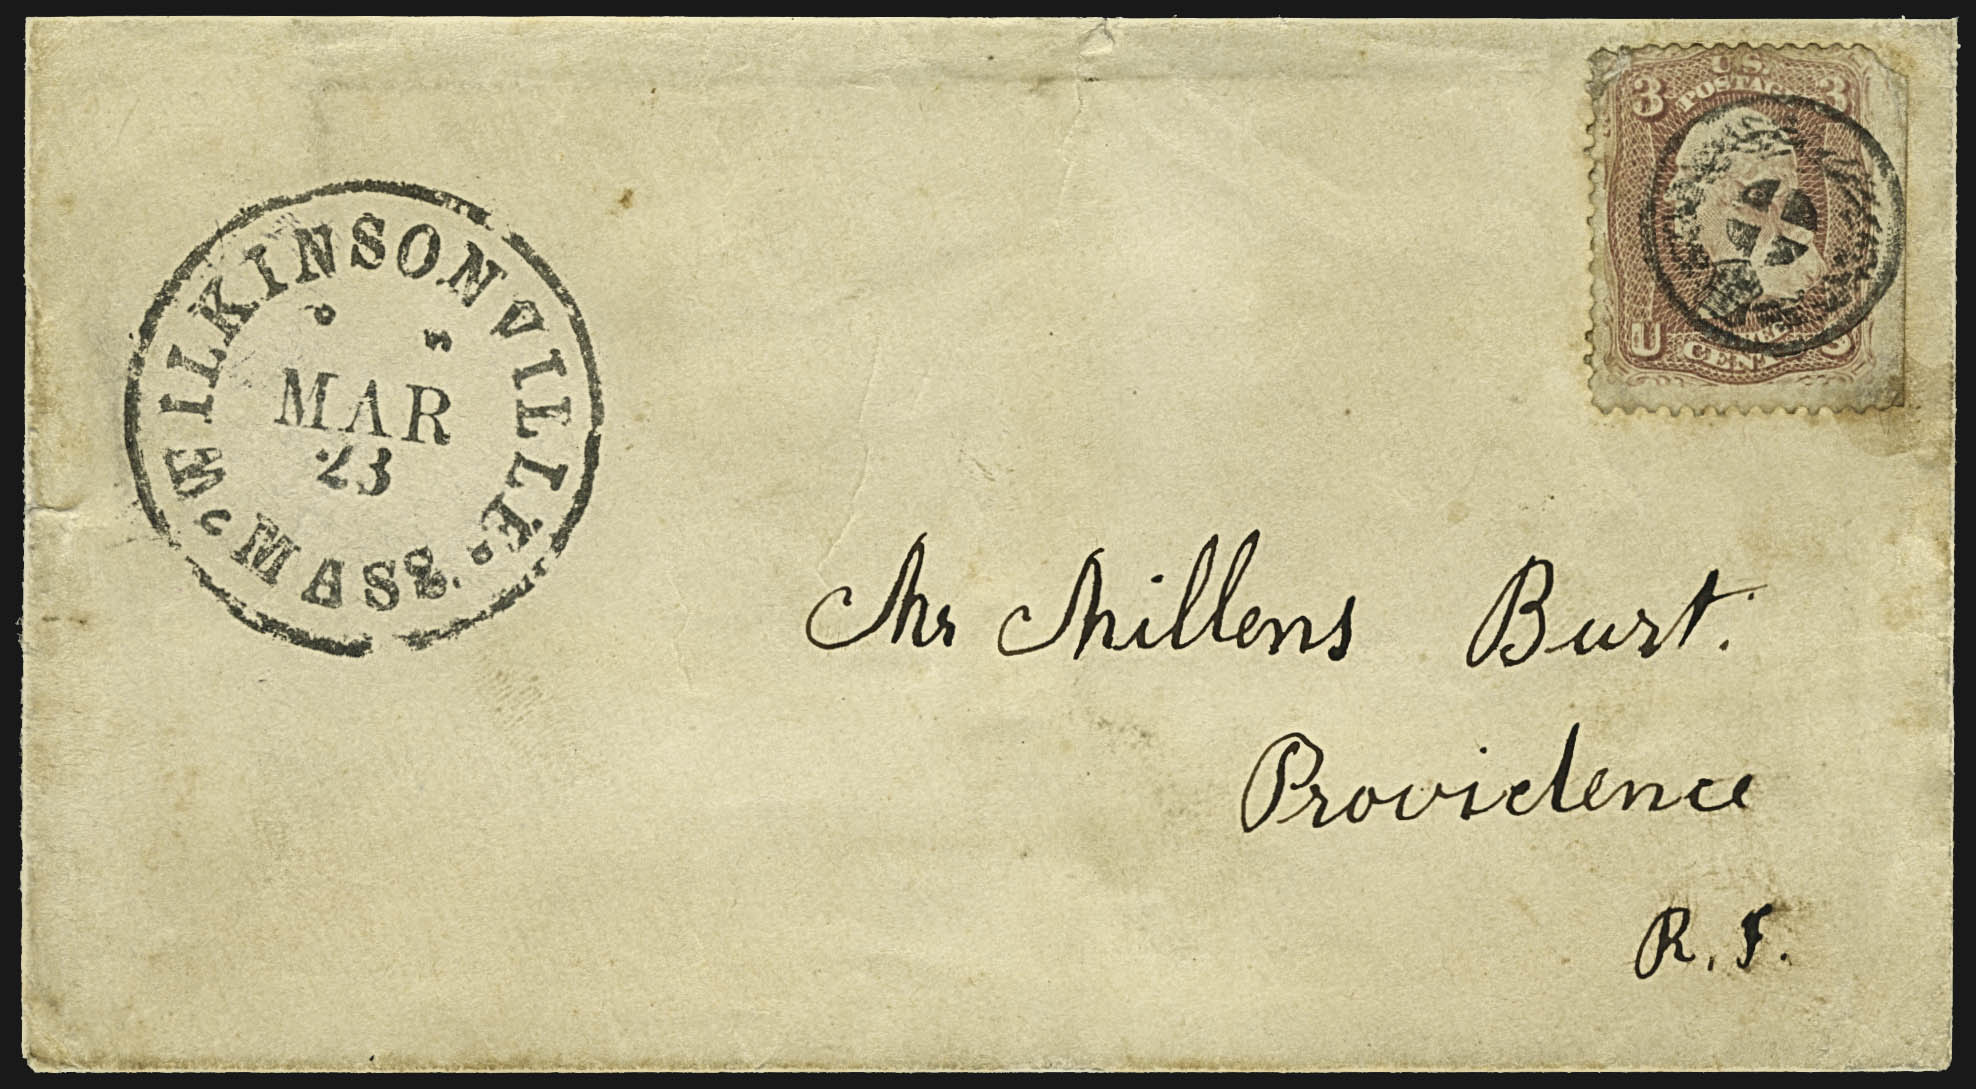 WILKINSONVILLE.
MAR
23
MASS.
U.S.
3 POSTAGE 3
U
CEN
Mr Millens Burt.
Providence
R. I.